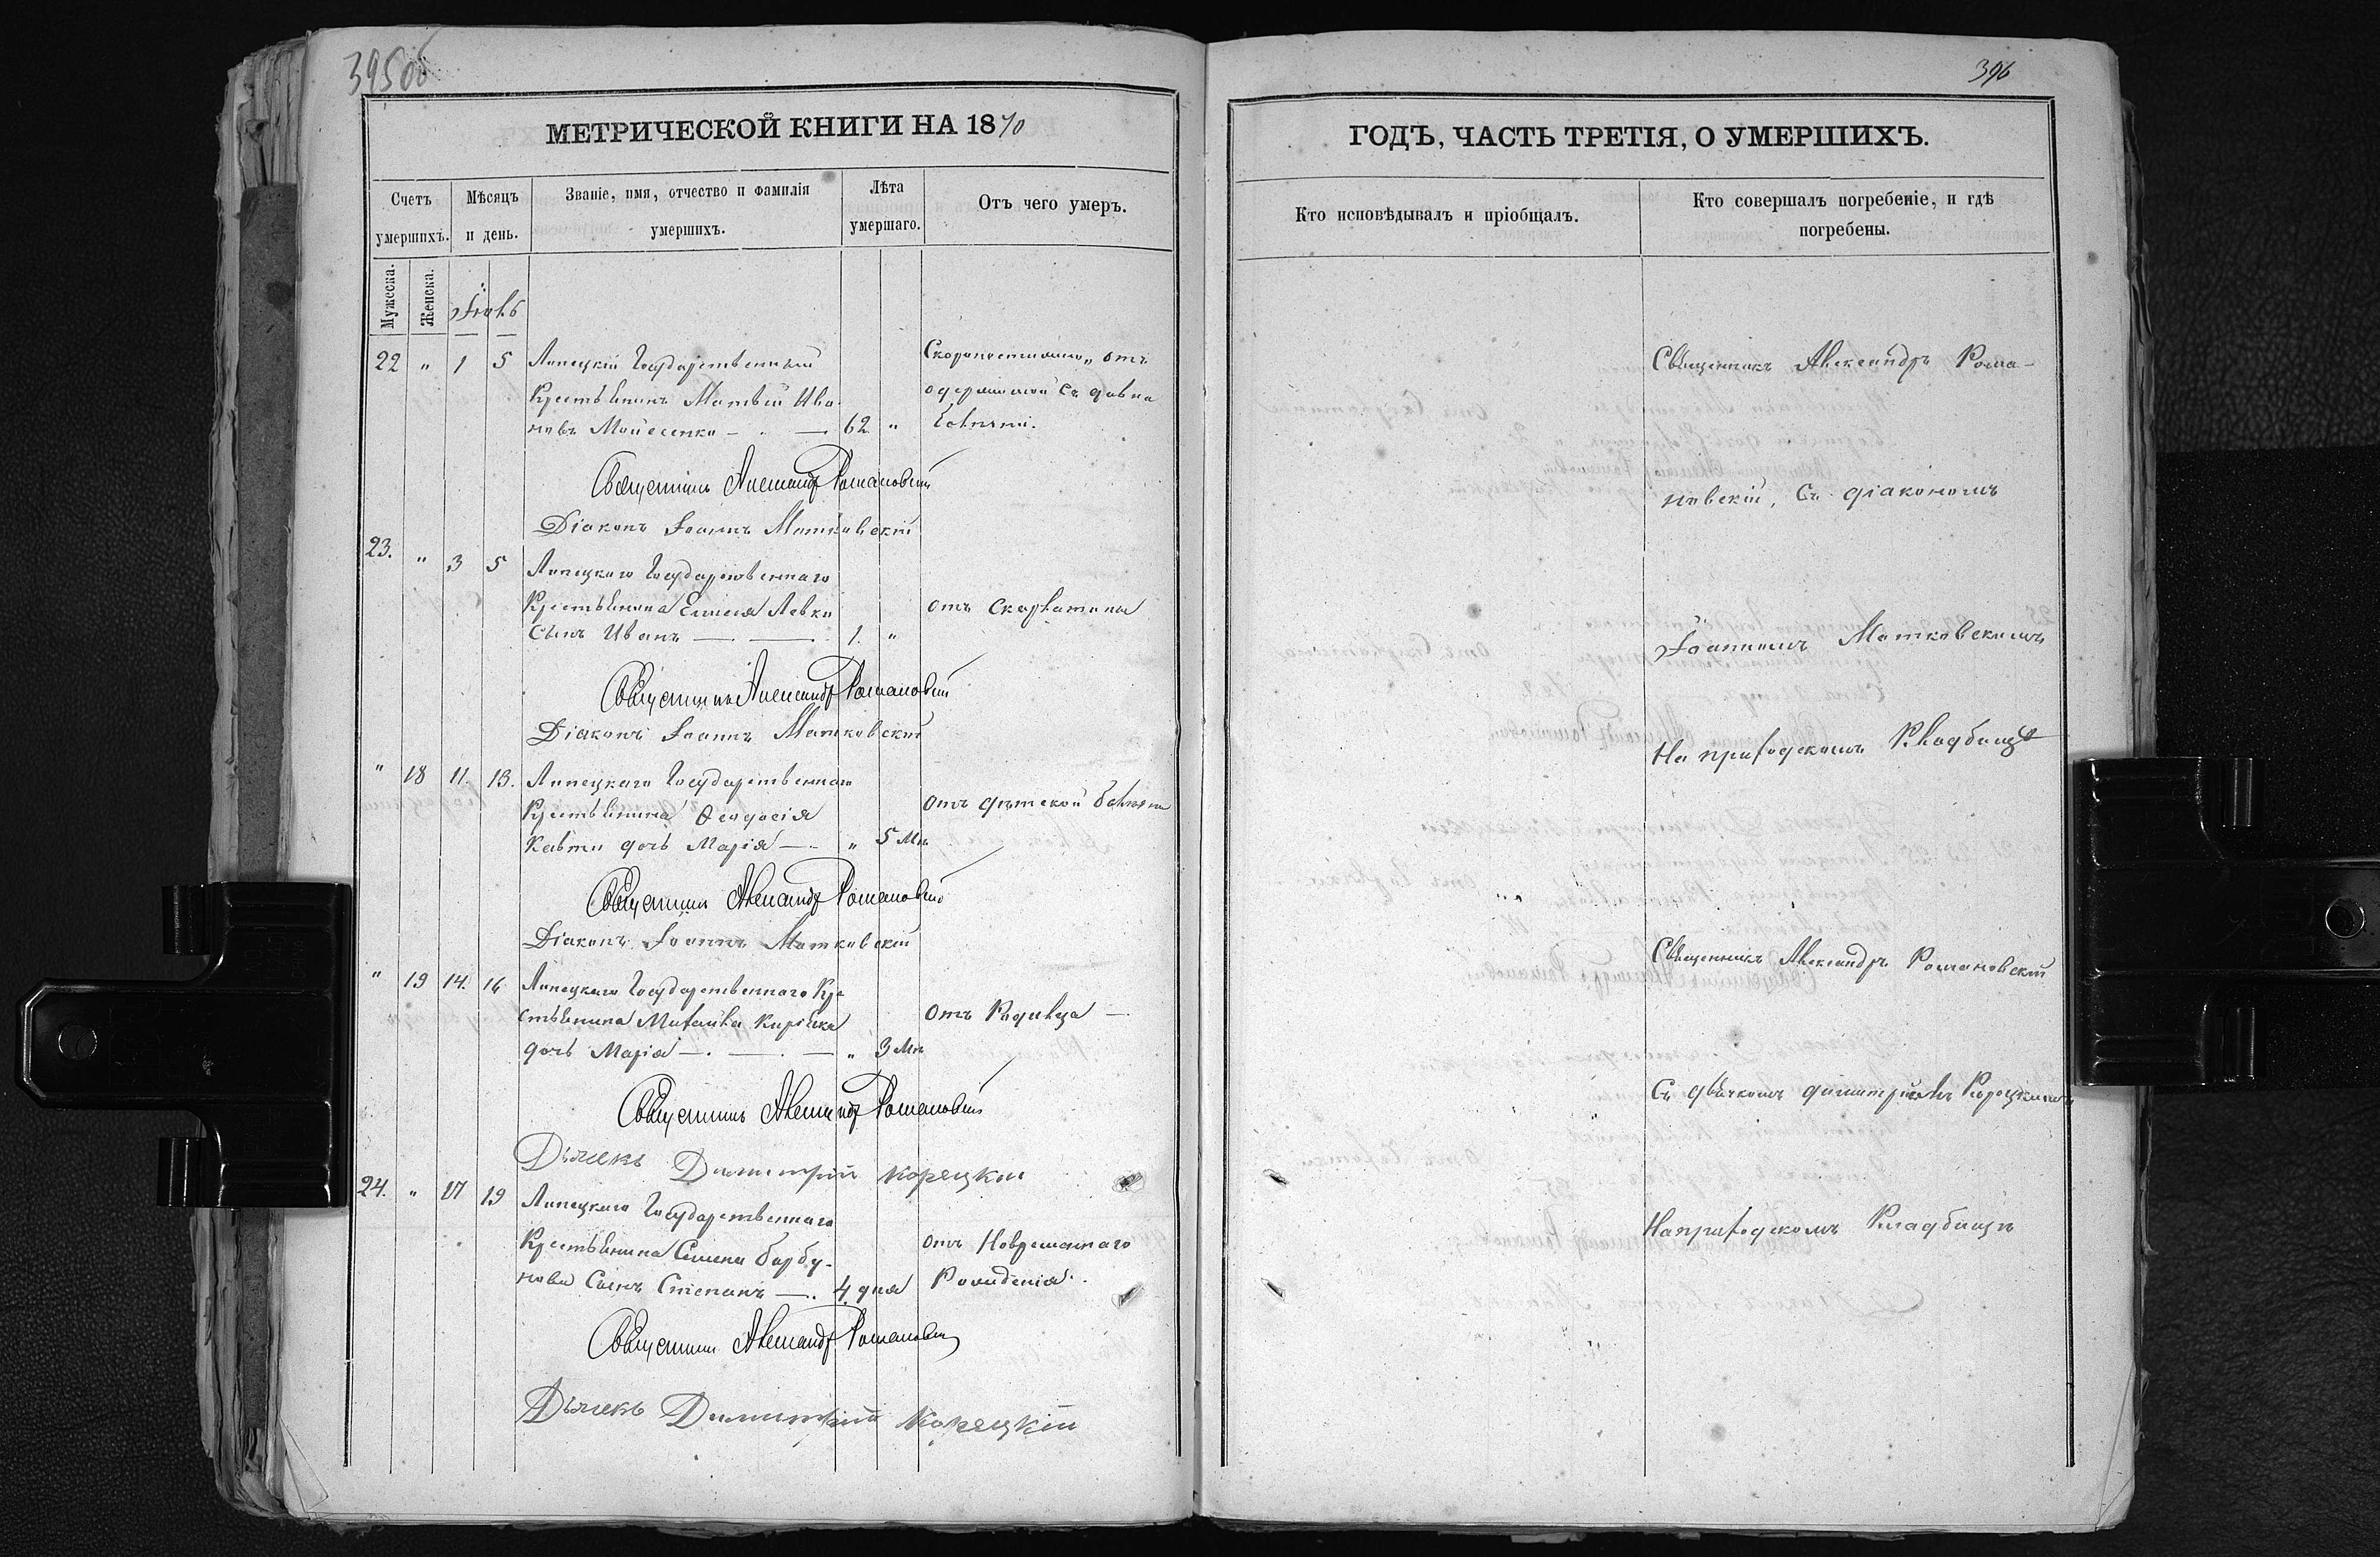 395об
МЕТРИЧЕСКОЙ КНИГИ НА 1870
Счетъ умершихъ.
Мѣсяцъ и день.
Званіе, имя, отчество и фамилія умершихъ.
Лѣта умершаго.
Отъ чего умеръ.
Мужеска.
Женска.
Іюль
22 " 1 5 Липецкій Государственный Скоропостижно, отъ
Крестьянинъ Матвѣй Ива- одержимой съ давна
новъ Мойсеенко 62 " болѣзни.
Священникъ Александръ Романовскій
Діаконъ Іоаннъ Матковскій
23. " 3 5 Липецкаго Государственнаго
Крестьянина Елисея Левки отъ скарлатины
сынъ Иванъ 1. "
Священникъ Александръ Романовскій
Діаконъ Іоаннъ Матковскій
" 18 11. 13. Липецкаго Государственнаго
Крестьянина Ѳеодосія отъ дѣтской болѣзни
Ковти дочь Марія " 5 Мц
Священникъ Александръ Романовскій
Діаконъ Іоаннъ Матковскій
" 19 14. 16 Липецкаго Государственнаго Кре
стьянина Михаила отъ Родимца
дочь Марія " 3 Мц
Священникъ Александръ Романовскій
Дьячекъ Димитрій Корецкій
24. " 17 19 Липецкаго Государственнаго
Крестьянина Семена Барбу- отъ
нова Сынъ Степанъ 4 дня Рожденія.
Священникъ Александръ Романовскій
Дьячекъ Димитрій Корецкій
396
ГОДЪ, ЧАСТЬ ТРЕТІЯ, О УМЕРШИХЪ.
Кто исповѣдывалъ и пріобщалъ.
Кто совершалъ погребеніе, и гдѣ
погребены.
Священникъ Александръ Рома-
новскій, Съ діакономъ
Іоанномъ Матковскимъ
На приходскомъ Кладбищѣ
Священникъ Александръ Романовскій
Съ дьячкомъ Димитріемъ Корецкимъ
На приходскомъ Кладбищѣ